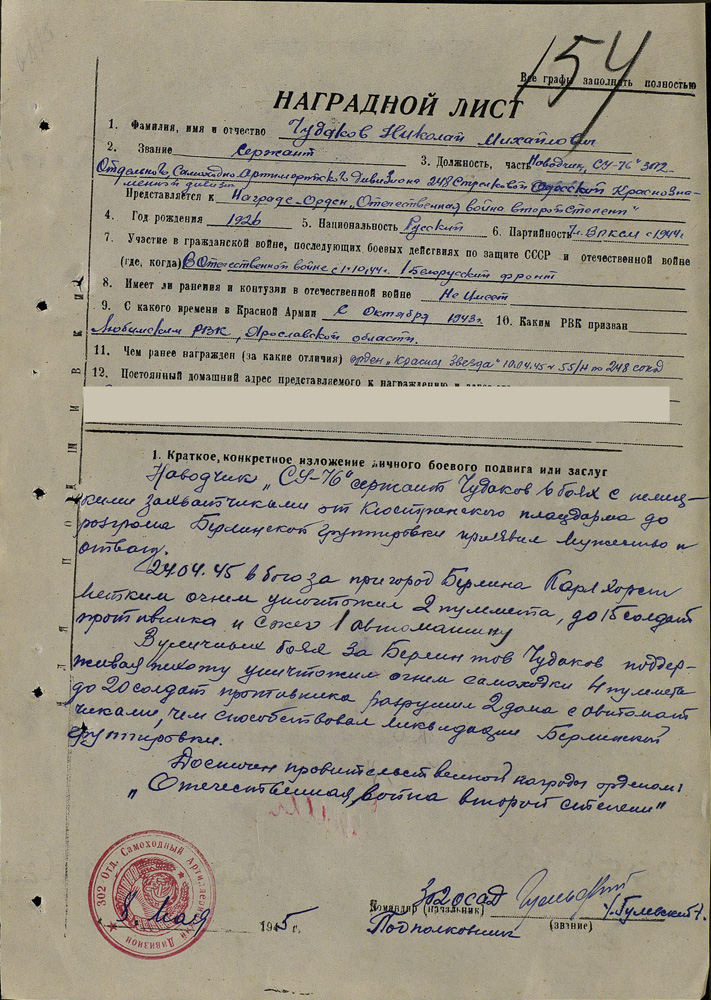 154
Все графы заполнять полностью
НАГРАДНОЙ ЛИСТ
1. Фамилия, имя и отчество Чудаков Николай Михайлович
2. Звание Сержант 3. Должность, часть Наводчик „СУ-76" 302
Отдельного Самоходно Артиллерийского Дивизиона 248 Стрелковой Одесской Краснозна-
менной дивизии
Представляется к Награде-Орден „Отечественная война второй степени"
4. Год рождения 1926 5. Национальность Русский 6. Партийность Чл. ВЛКСМ с 1944г
7. Участие в гражданской войне, последующих боевых действиях по защите СССР и отечественной войне
(где, когда) В Отечественной войне с 1-10.44г. 1 Белорусский фронт
8. Имеет ли ранения и контузии в отечественной войне Не имеет
9. С какого времени в Красной Армии С Октября 1943г. 10. Каким РВК призван
Любимским РВК, Ярославской области.
11. Чем ранее награжден (за какие отличия) орден „Красная Звезда" 10.04.45 г 55/н по 248 сокд
12. Постоянный домашний адрес представляемого к награждению и
1. Краткое, конкретное изложение личного боевого подвига или заслуг
Наводчик „СУ-76" сержант Чудаков в боях с немец-
кими захватчиками от Кюстринского плацдарма до
розгрома Берлинской группировки проявил мужество и
отвагу.
24.04.45 в бою за пригород Берлина Карлхорст
метким огнем уничтожил 2 пулмета, до 15 солдат
противника и сжег 1 автомашину
В уличных боях за Берлин тов Чудаков поддер-
живая пихоту уничтожил огнем самоходки 4 пулмета
до 20 солдат противника розрушил 2 дома с автомат
чиками, чем способствовал ликвидации Берлинской
группировки.
Достоин правительственной награды орденом:
„Отечественная война второй степени"
302 Отд. Самоходный Артиллерийский Дивизион
8. Мая 1945 г.
302 ОСАД
Командир (начальник) /Гулевский/.
Подполковник (звание)